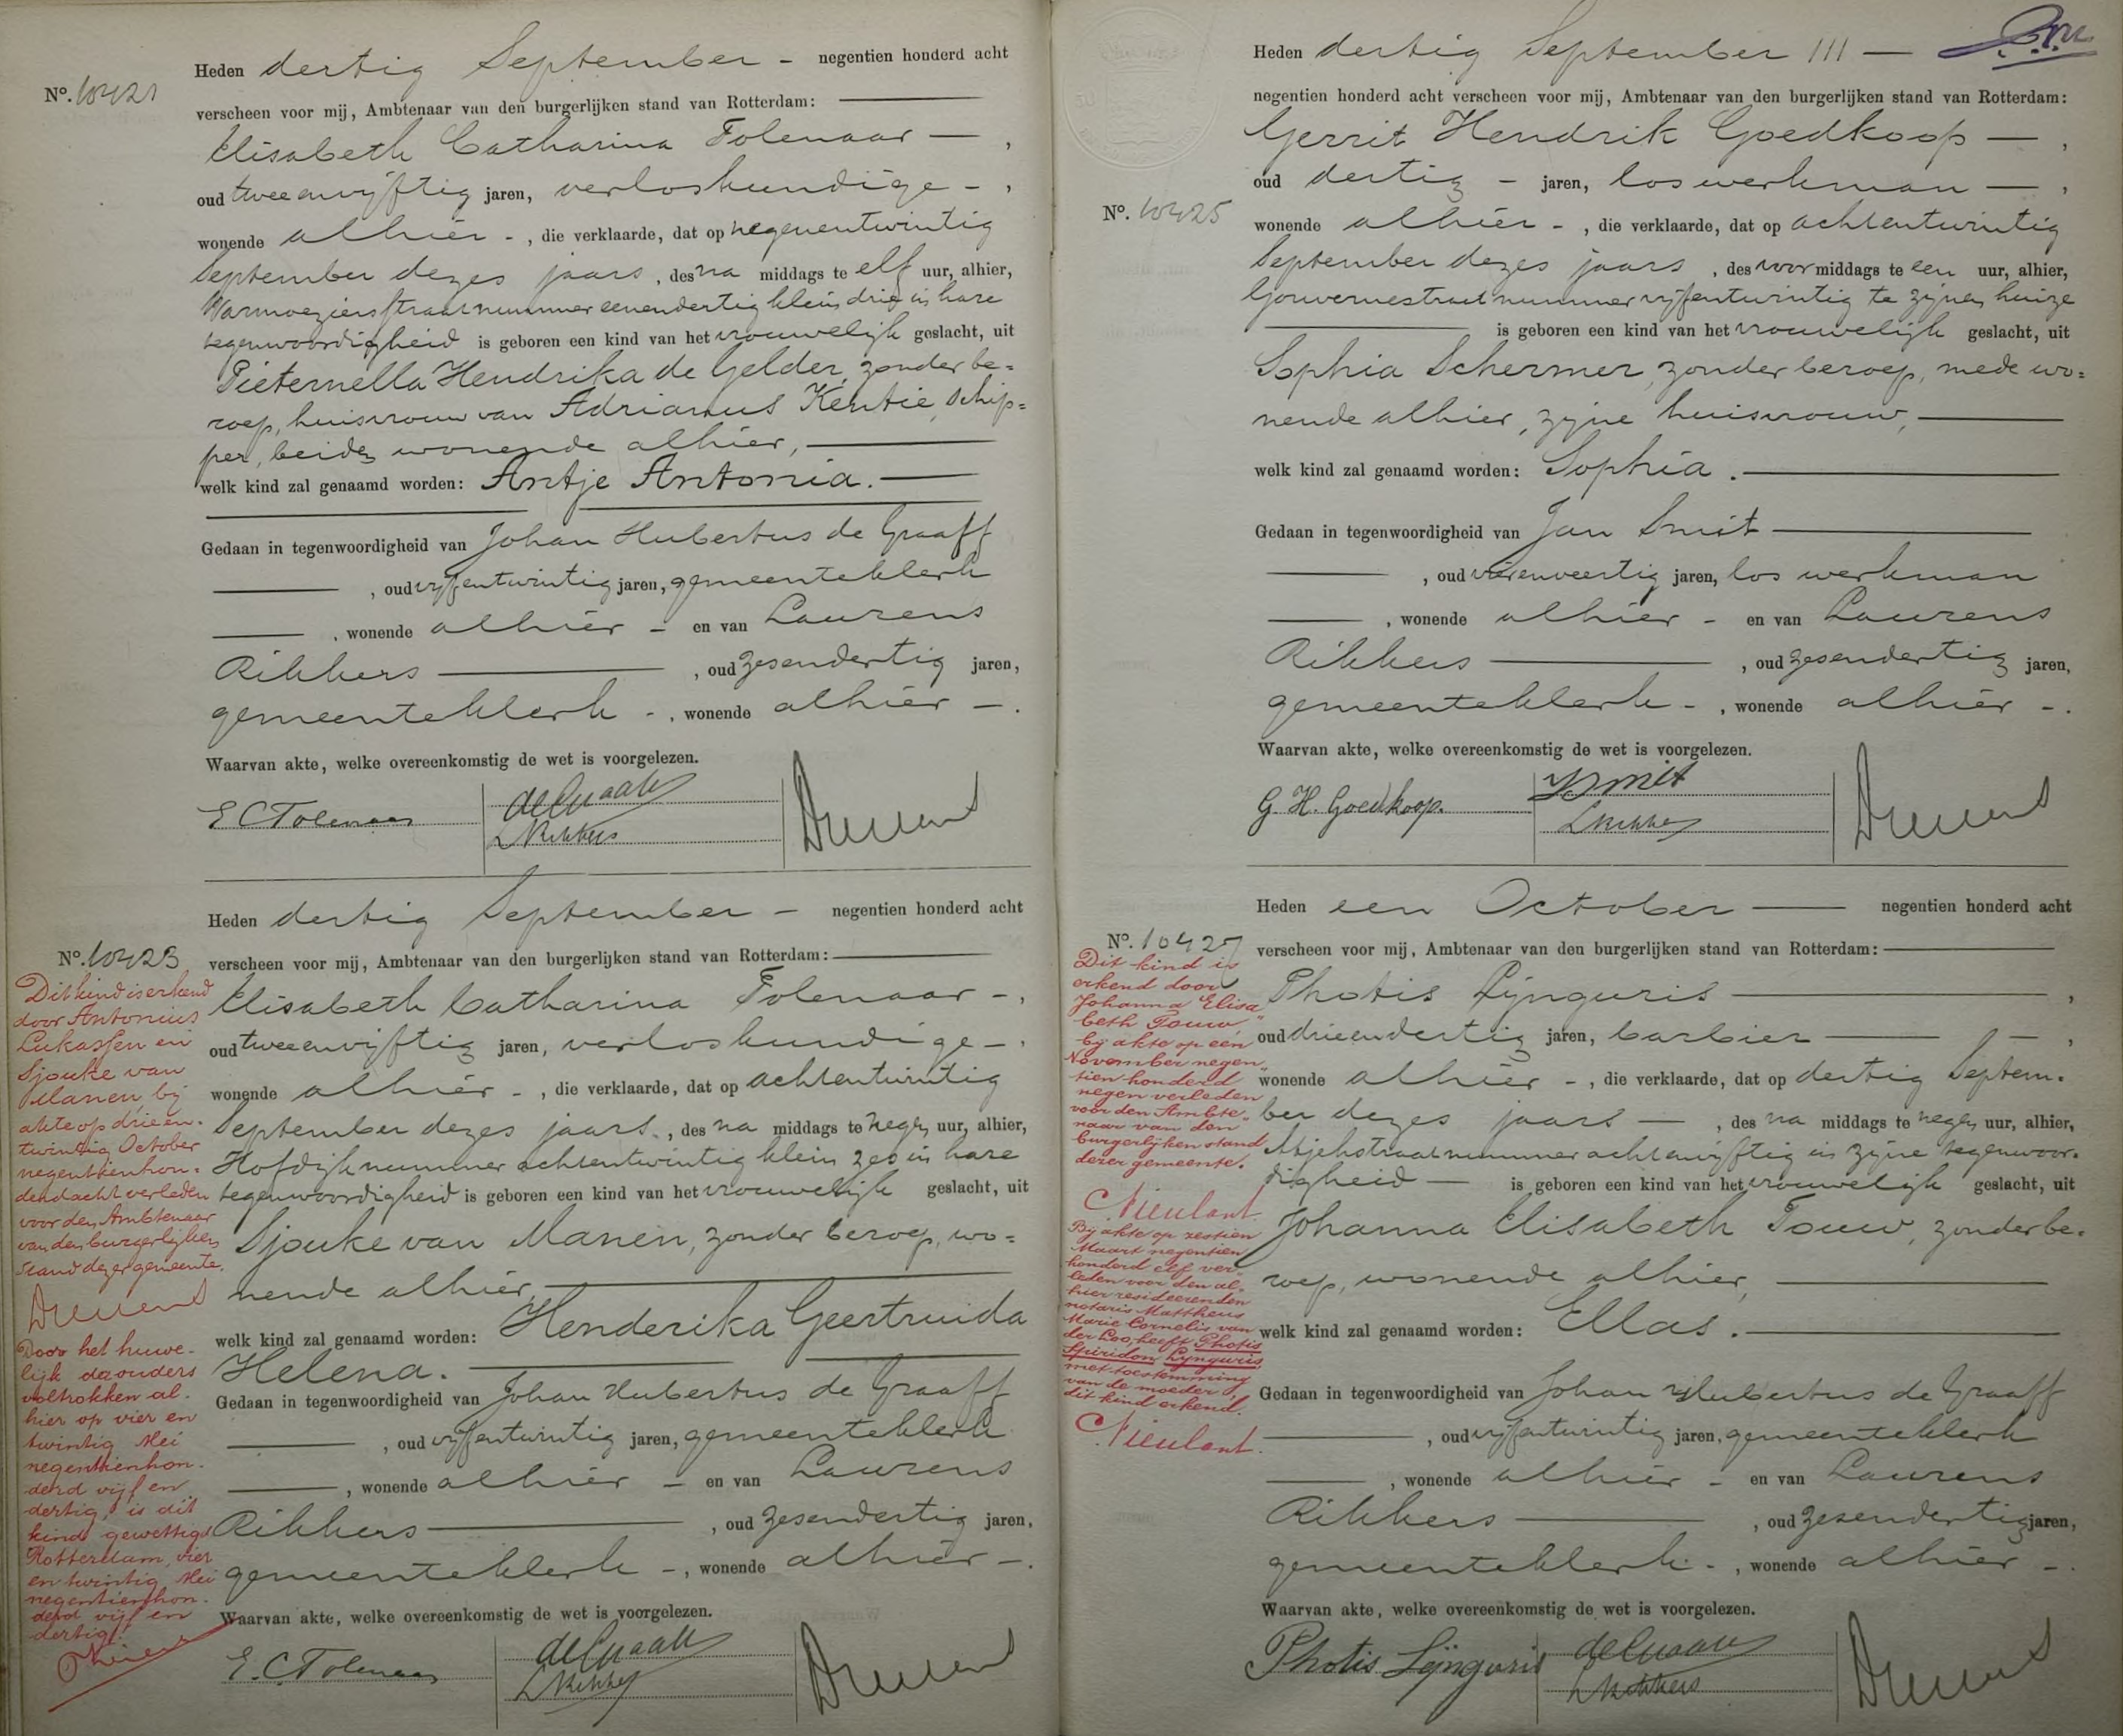 Heden dertig September - negentien honderd acht
No. 10421
verscheen voor mij, Ambtenaar van den burgerlijken stand van Rotterdam:
Elisabeth Catharina Tolenaar ,
oud tweeenvijftig jaren, verloskundige - ,
wonende alhier - , die verklaarde, dat op negenentwintig
September dezes jaars , des na middags te elf uur, alhier,
Warmoeziersstraat nummer eenendertig klein drie in hare
tegenwoordigheid is geboren een kind van het vrouwelijk geslacht, uit
Pieternella Hendrika de Gelder, zonder be=
roep, huisvrouw van Adrianus Kentie, schip=
per, beiden wonende alhier,
welk kind zal genaamd worden: Antje Antonia.
Gedaan in tegenwoordigheid van Johan Hubertus de Graaff
, oud vijfentwintig jaren, gemeenteklerk
, wonende alhier - en van Laurens
Rikkers , oud zesendertig jaren,
gemeenteklerk - , wonende alhier - .
Waarvan akte, welke overeenkomstig de wet is voorgelezen.
E C Tolenaar
de Graaff
L Rikkers
Heden dertig September - negentien honderd acht
No. 10423
verscheen voor mij, Ambtenaar van den burgerlijken stand van Rotterdam:
Elisabeth Catharina Tolenaar - ,
oud tweeenvijftig jaren, verloskundige - ,
wonende alhier - , die verklaarde, dat op achtentwintig
September dezes jaars , des na middags te negen uur, alhier,
Hofdijk nummer achtentwintig klein zes in hare
tegenwoordigheid is geboren een kind van het vrouwelijk geslacht, uit
Sjouke van Manen, zonder beroep, wo=
nende alhier,
welk kind zal genaamd worden: Henderika Geertruida
Helena.
Gedaan in tegenwoordigheid van Johan Hubertus de Graaff
, oud vijfentwintig jaren, gemeenteklerk
, wonende alhier - en van Laurens
Rikkers , oud zesendertig jaren,
gemeenteklerk - , wonende alhier - .
Waarvan akte, welke overeenkomstig de wet is voorgelezen.
E. C. Tolenaar
de Graaff
L Rikkers
Dit kind is erkend
door Antonius
Lukassen en
Sjouke van
Manen, bij
akte op drieen-
twintig October
negentienhon-
derd acht verleden
voor den Ambtenaar
van den burgerlijken
stand dezer gemeente.
Door het huwe-
lijk der ouders
voltrokken al-
hier op vier en
twintig Mei
negentienhon-
derd vijf en
dertig, is dit
kind gewettigd
Rotterdam, vier
en twintig Mei
negentienhon-
derd vijf en
dertig.
Heden dertig September 111 -
negentien honderd acht verscheen voor mij, Ambtenaar van den burgerlijken stand van Rotterdam:
Gerrit Hendrik Goedkoop - ,
oud dertig - jaren, los werkman - ,
No. 10425
wonende alhier - , die verklaarde, dat op achtentwintig
September dezes jaars , des voor middags te een uur, alhier,
Gouvernestraat nummer vijfentwintig te zijnen huize
is geboren een kind van het vrouwelijk geslacht, uit
Sophia Schermer, zonder beroep, mede wo=
nende alhier, zijne huisvrouw,
welk kind zal genaamd worden: Sophia.
Gedaan in tegenwoordigheid van Jan Smit
, oud vierenveertig jaren, los werkman
, wonende alhier - en van Laurens
Rikkers , oud zesendertig jaren,
gemeenteklerk - , wonende alhier - .
Waarvan akte, welke overeenkomstig de wet is voorgelezen.
G. H. Goedkoop.
J Smit
L Rikkers
Heden een October negentien honderd acht
No. 10427
verscheen voor mij, Ambtenaar van den burgerlijken stand van Rotterdam:
Photis Lijnguris ,
oud drieendertig jaren, barbier - ,
wonende alhier - , die verklaarde, dat op dertig Septem-
ber dezes jaars - , des na middags te negen uur, alhier,
Atjehstraat nummer achtenvijftig in zijne tegenwoor-
digheid - is geboren een kind van het vrouwelijk geslacht, uit
Johanna Elisabeth Touw, zonder be-
roep, wonende alhier,
welk kind zal genaamd worden: Ellas.
Gedaan in tegenwoordigheid van Johan Hubertus de Graaff
, oud vijfentwintig jaren, gemeenteklerk
, wonende alhier - en van Laurens
Rikkers , oud zesendertig jaren,
gemeenteklerk - , wonende alhier - .
Waarvan akte, welke overeenkomstig de wet is voorgelezen.
Photis Lijnguris
de Graaff
L Rikkers
Dit kind is
erkend door
Johanna Elisa
beth Touw,
bij akte op een
November negen
tien honderd
negen verleden
voor den Ambte-
naar van den
burgerlijken stand
dezer gemeente.
Nieulant.
Bij akte op zestien
Maart negentien
honderd elf ver-
leden voor den al-
hier resideerenden
notaris Mattheus
Marie Cornelis van
der Loo, heeft Photis
Spiridon Lynguris
met toestemming
van de moeder
dit kind erkend.
Nieulant.